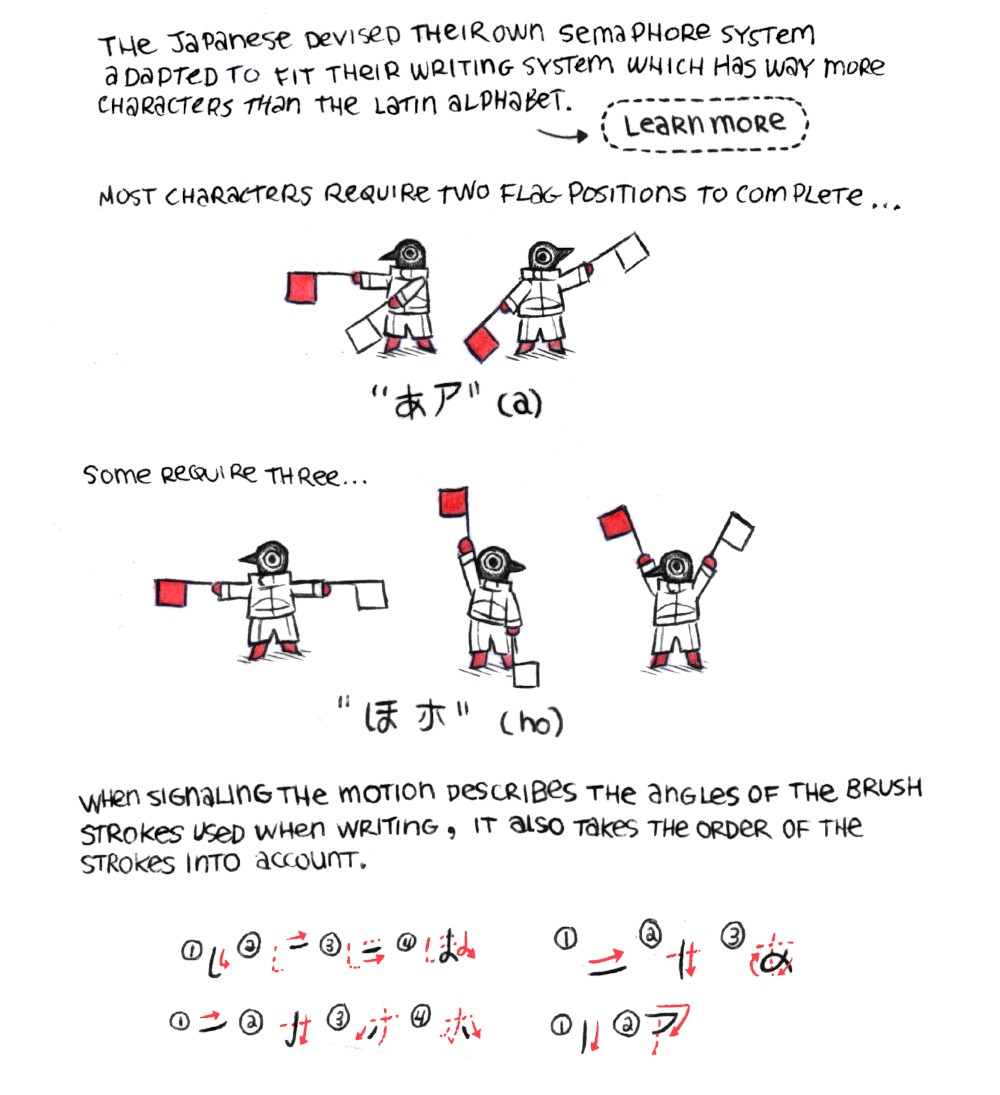 The Japanese devised their own semaphore system
adapted to fit their writing system which has way more
characters than the Latin alphabet.
Learn more
Most characters require two flag positions to complete...
"あア" (a)
Some require three...
"ほホ" (ho)
When signaling the motion describes the angles of the brush
strokes used when writing, it also takes the order of the
strokes into account.
① ② ③ ④ ほ ① ② ③ あ
① ② ③ ④ ホ ① ② ア